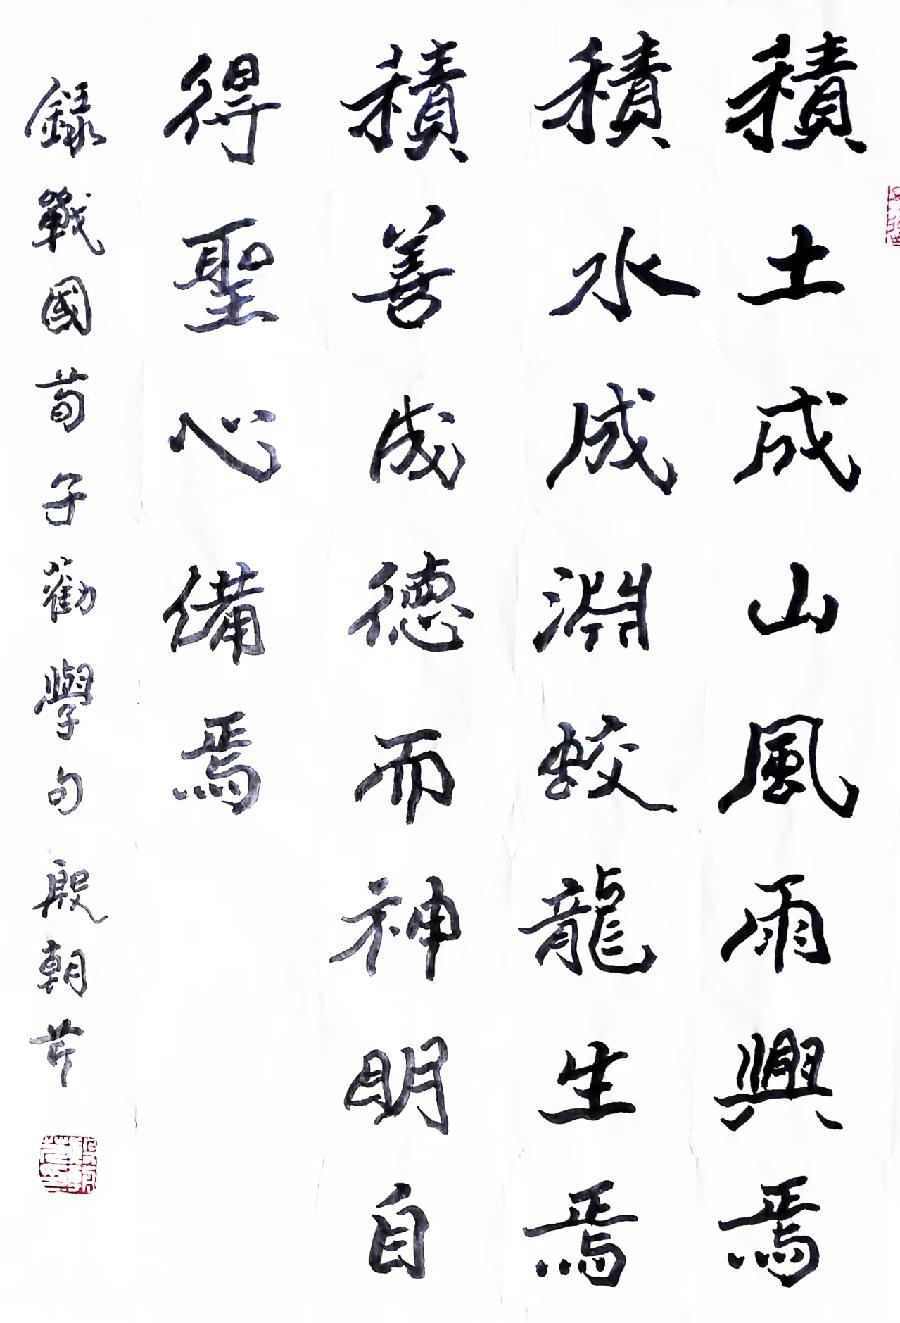 積土成山風雨興焉
積水成淵蛟龍生焉
積善成德而神明自
得聖心備焉
錄戰國荀子勸學句殷朝芹